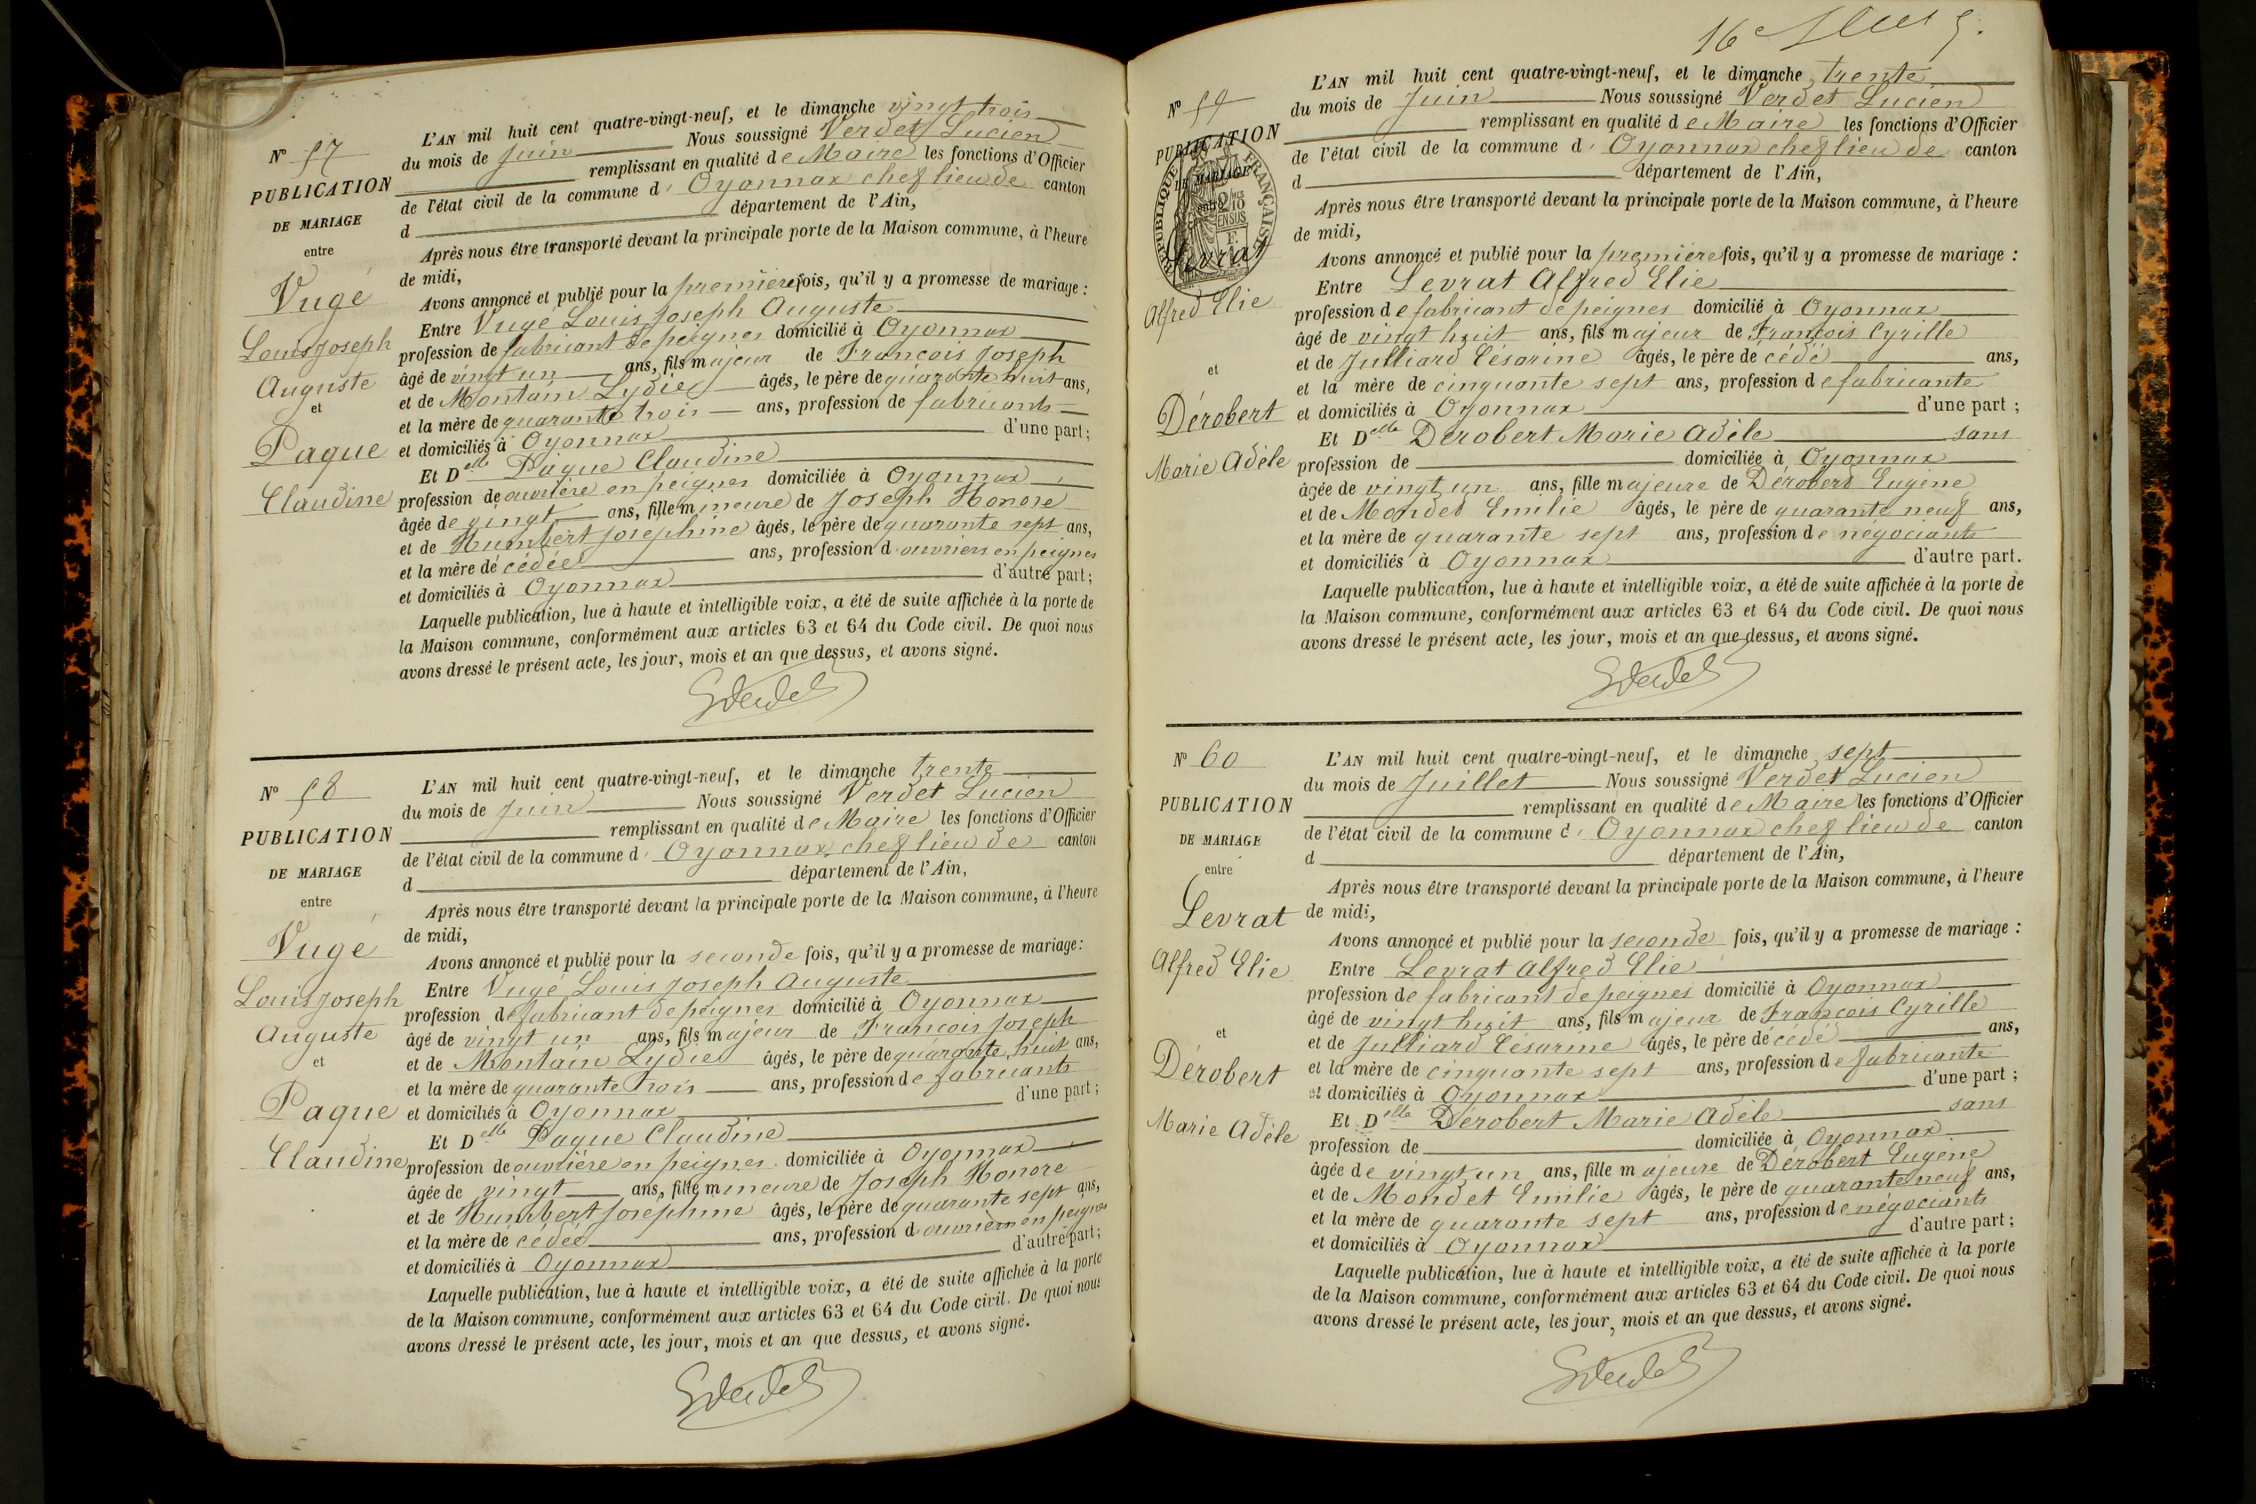 N° 57
PUBLICATION
DE MARIAGE
entre
Vugé
Louis Joseph
Auguste
et
Paque
Claudine
L'AN mil huit cent quatre-vingt-neuf, et le dimanche vingt trois
du mois de Juin Nous soussigné Verdet Lucien
remplissant en qualité de Maire les fonctions d'Officier
de l'état civil de la commune d' Oyonnax chef lieu de canton
d département de l'Ain,
Après nous être transporté devant la principale porte de la Maison commune, à l'heure
de midi,
Avons annoncé et publié pour la première fois, qu'il y a promesse de mariage :
Entre Vugé Louis Joseph Auguste
profession de fabricant de peignes domicilié à Oyonnax
âgé de vingt un ans, fils majeur de François Joseph
et de Montain Lydie âgés, le père de quarante huit ans,
et la mère de quarante trois ans, profession de fabricants
et domiciliés à Oyonnax d'une part ;
Et Delle Paque Claudine
profession de ouvrière en peignes domiciliée à Oyonnax
âgée de vingt ans, fille mineure de Joseph Honoré
et de Humbert Josephine âgés, le père de quarante sept ans,
et la mère décédée ans, profession d'ouvriers en peignes
et domiciliés à Oyonnax d'autre part ;
Laquelle publication, lue à haute et intelligible voix, a été de suite affichée à la porte de
la Maison commune, conformément aux articles 63 et 64 du Code civil. De quoi nous
avons dressé le présent acte, les jour, mois et an que dessus, et avons signé.
N° 58
PUBLICATION
DE MARIAGE
entre
Vugé
Louis Joseph
Auguste
et
Paque
Claudine
L'AN mil huit cent quatre-vingt-neuf, et le dimanche trente
du mois de Juin Nous soussigné Verdet Lucien
remplissant en qualité de Maire les fonctions d'Officier
de l'état civil de la commune d' Oyonnax chef lieu de canton
d département de l'Ain,
Après nous être transporté devant la principale porte de la Maison commune, à l'heure
de midi,
Avons annoncé et publié pour la seconde fois, qu'il y a promesse de mariage :
Entre Vugé Louis Joseph Auguste
profession de fabricant de peignes domicilié à Oyonnax
âgé de vingt un ans, fils majeur de François Joseph
et de Montain Lydie âgés, le père de quarante huit ans,
et la mère de quarante trois ans, profession de fabricants
et domiciliés à Oyonnax d'une part ;
Et Delle Paque Claudine
profession de ouvrière en peignes domiciliée à Oyonnax
âgée de vingt ans, fille mineure de Joseph Honoré
et de Humbert Josephine âgés, le père de quarante sept ans,
et la mère décédée ans, profession d'ouvriers en peignes
et domiciliés à Oyonnax d'autre part ;
Laquelle publication, lue à haute et intelligible voix, a été de suite affichée à la porte
de la Maison commune, conformément aux articles 63 et 64 du Code civil. De quoi nous
avons dressé le présent acte, les jour, mois et an que dessus, et avons signé.
16e
N° 59
PUBLICATION
DE MARIAGE
entre
RÉPUBLIQUE FRANÇAISE
Levrat
Alfred Elie
et
Dérobert
Marie Adèle
L'AN mil huit cent quatre-vingt-neuf, et le dimanche trente
du mois de Juin Nous soussigné Verdet Lucien
remplissant en qualité de Maire les fonctions d'Officier
de l'état civil de la commune d' Oyonnax chef lieu de canton
d département de l'Ain,
Après nous être transporté devant la principale porte de la Maison commune, à l'heure
de midi,
Avons annoncé et publié pour la première fois, qu'il y a promesse de mariage :
Entre Levrat Alfred Elie
profession de fabricant de peignes domicilié à Oyonnax
âgé de vingt huit ans, fils majeur de François Cyrille
et de Julliard Césarine âgés, le père décédé ans,
et la mère de cinquante sept ans, profession de fabricante
et domiciliés à Oyonnax d'une part ;
Et Delle Dérobert Marie Adèle sans
profession de domiciliée à Oyonnax
âgée de vingt un ans, fille majeure de Dérobert Eugène
et de Mondet Emilie âgés, le père de quarante neuf ans,
et la mère de quarante sept ans, profession de négociants
et domiciliés à Oyonnax d'autre part.
Laquelle publication, lue à haute et intelligible voix, a été de suite affichée à la porte de
la Maison commune, conformément aux articles 63 et 64 du Code civil. De quoi nous
avons dressé le présent acte, les jour, mois et an que dessus, et avons signé.
N° 60
PUBLICATION
DE MARIAGE
entre
Levrat
Alfred Elie
et
Dérobert
Marie Adèle
L'AN mil huit cent quatre-vingt-neuf, et le dimanche sept
du mois de Juillet Nous soussigné Verdet Lucien
remplissant en qualité de Maire les fonctions d'Officier
de l'état civil de la commune d' Oyonnax chef lieu de canton
d département de l'Ain,
Après nous être transporté devant la principale porte de la Maison commune, à l'heure
de midi,
Avons annoncé et publié pour la seconde fois, qu'il y a promesse de mariage :
Entre Levrat Alfred Elie
profession de fabricant de peignes domicilié à Oyonnax
âgé de vingt huit ans, fils majeur de François Cyrille
et de Julliard Césarine âgés, le père décédé ans,
et la mère de cinquante sept ans, profession de fabricante
et domiciliés à Oyonnax d'une part ;
Et Delle Dérobert Marie Adèle sans
profession de domiciliée à Oyonnax
âgée de vingt un ans, fille majeure de Dérobert Eugène
et de Mondet Emilie âgés, le père de quarante neuf ans,
et la mère de quarante sept ans, profession de négociants
et domiciliés à Oyonnax d'autre part ;
Laquelle publication, lue à haute et intelligible voix, a été de suite affichée à la porte
de la Maison commune, conformément aux articles 63 et 64 du Code civil. De quoi nous
avons dressé le présent acte, les jour, mois et an que dessus, et avons signé.